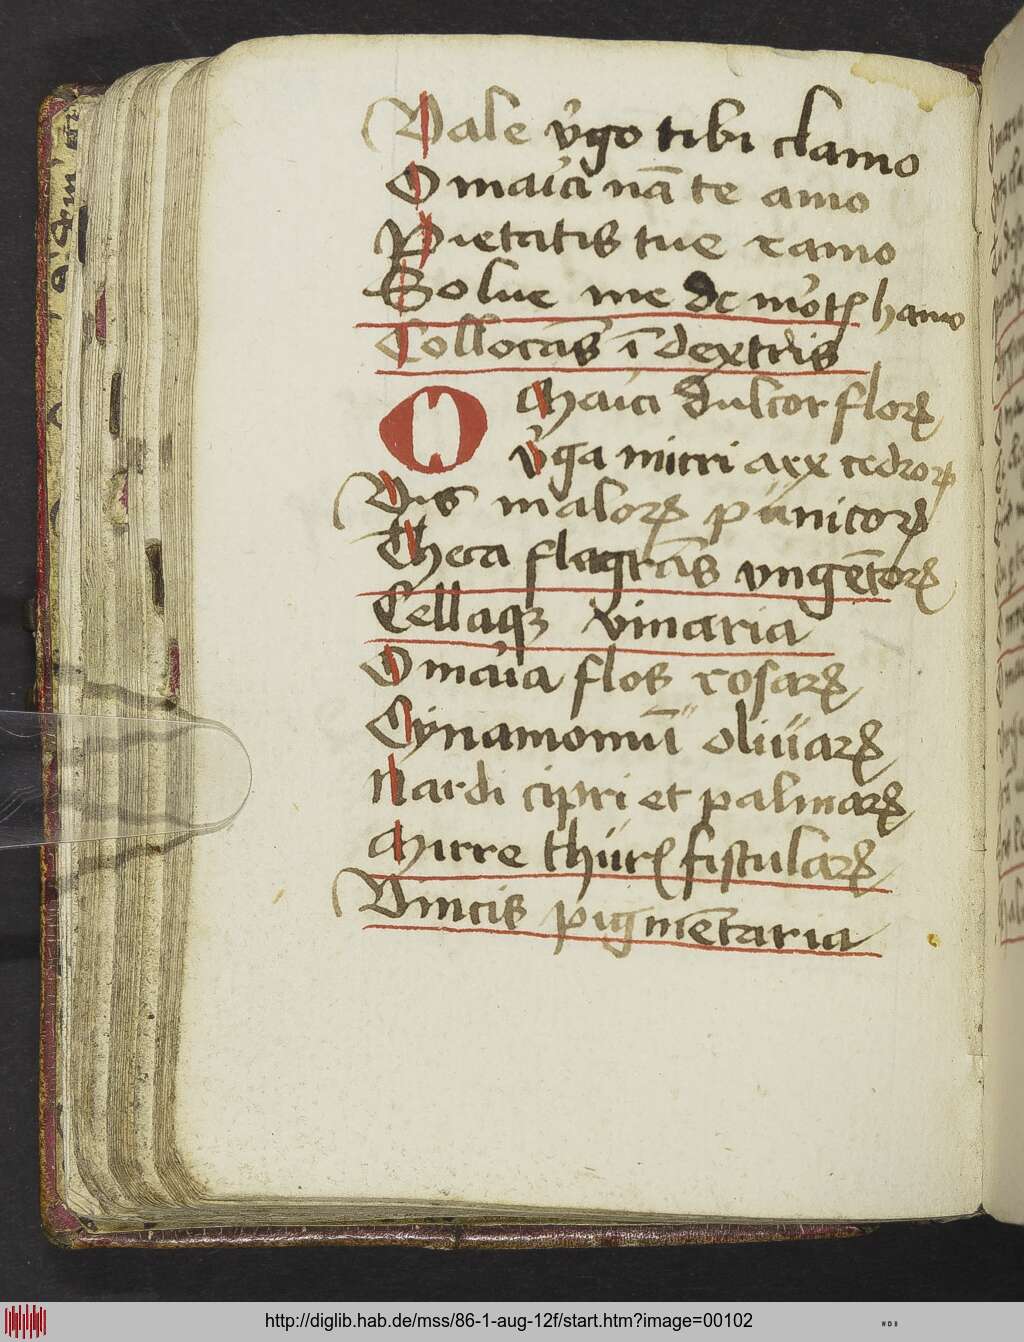 Vale v͛go tibi clamo
O maria nā te amo
Pietatis tue ramo
Solue me de mo͛tꝭ hamo
Collocās ī dextris
O Maria dulcor florꝝ
v͛ga mirri arx cedrorꝝ
Vis malorꝝ punicorꝝ
Theca flagrās vngētorꝝ
Cellaqꝫ vinaria
O maria flos rosarꝝ
Cynamomū oliuarꝝ
Nardi cipri et palmarꝝ
Mirre thurꝭ fistularꝝ
Vincis pigmētaria
http://diglib.hab.de/mss/86-1-aug-12f/start.htm?image=00102